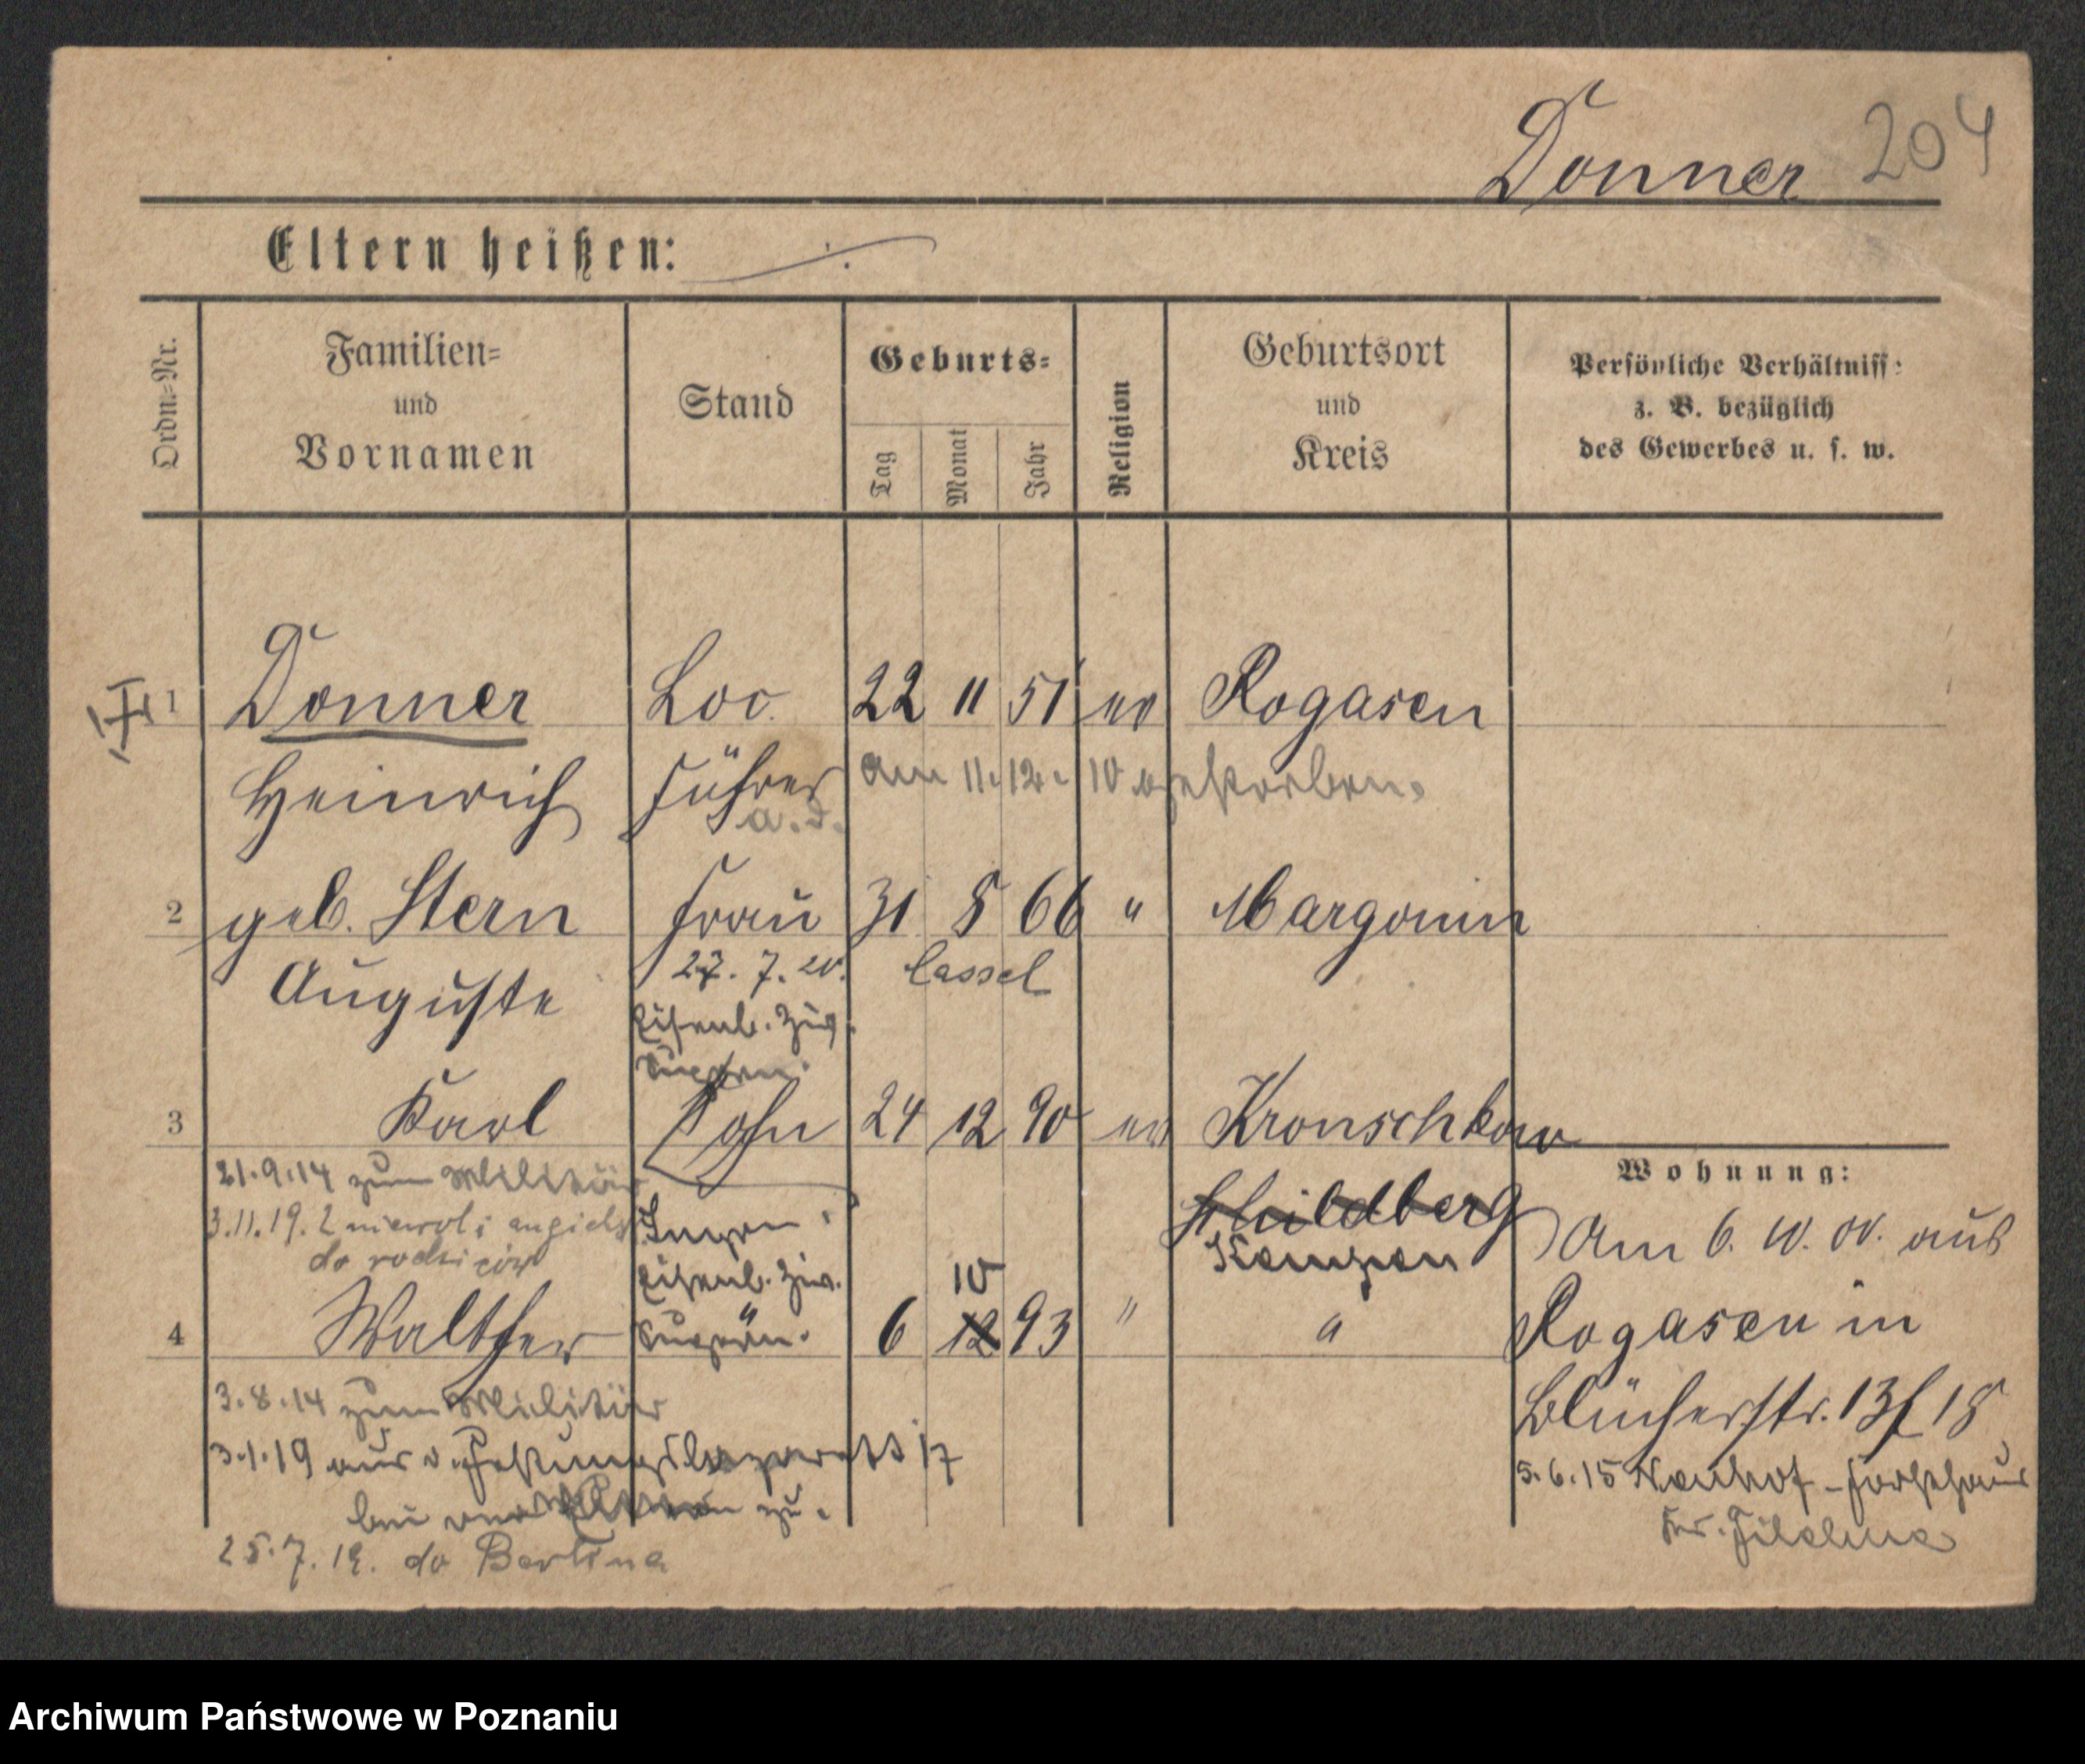 Donner 204
Eltern heißen:
Ordn.=Nr.
Familien=
und
Vornamen
Stand
Geburts=
Tag
Monat
Jahr
Religion
Geburtsort
und
Kreis
Persönliche Verhältniss
z. B. bezüglich
des Gewerbes u. s. w.
1 Donner Loc. 22 11 51 ev Rogasen
Heinrich Führer am 11. 12. 10 gestorben.
a. D.
2 geb. Stern Frau 31 8 66 " Margonin
Auguste 27. 7. 20. Cassel
Eisenb. Ziv.
Supern.
3 Karl Sohn 24 12 90 ev Kronschkow
21.9.14 zum Militär
Wohnung:
Schildberg
3.11.19. z niewoli angiels
Am 6. 10. 00. aus
do rodziców
Kempen
Eisenb. Ziv.
10
4 Walther Supern. 6 12 93 " "
Rogasen in
3.8.14 zum Militär
Blücherstr. 13 18
3.1.19 aus d. Festungslazarett 17
5.6.15 Neuhof - Forsthaus
bei zu.
25.7.19. do Berlina
Kr. Filehne